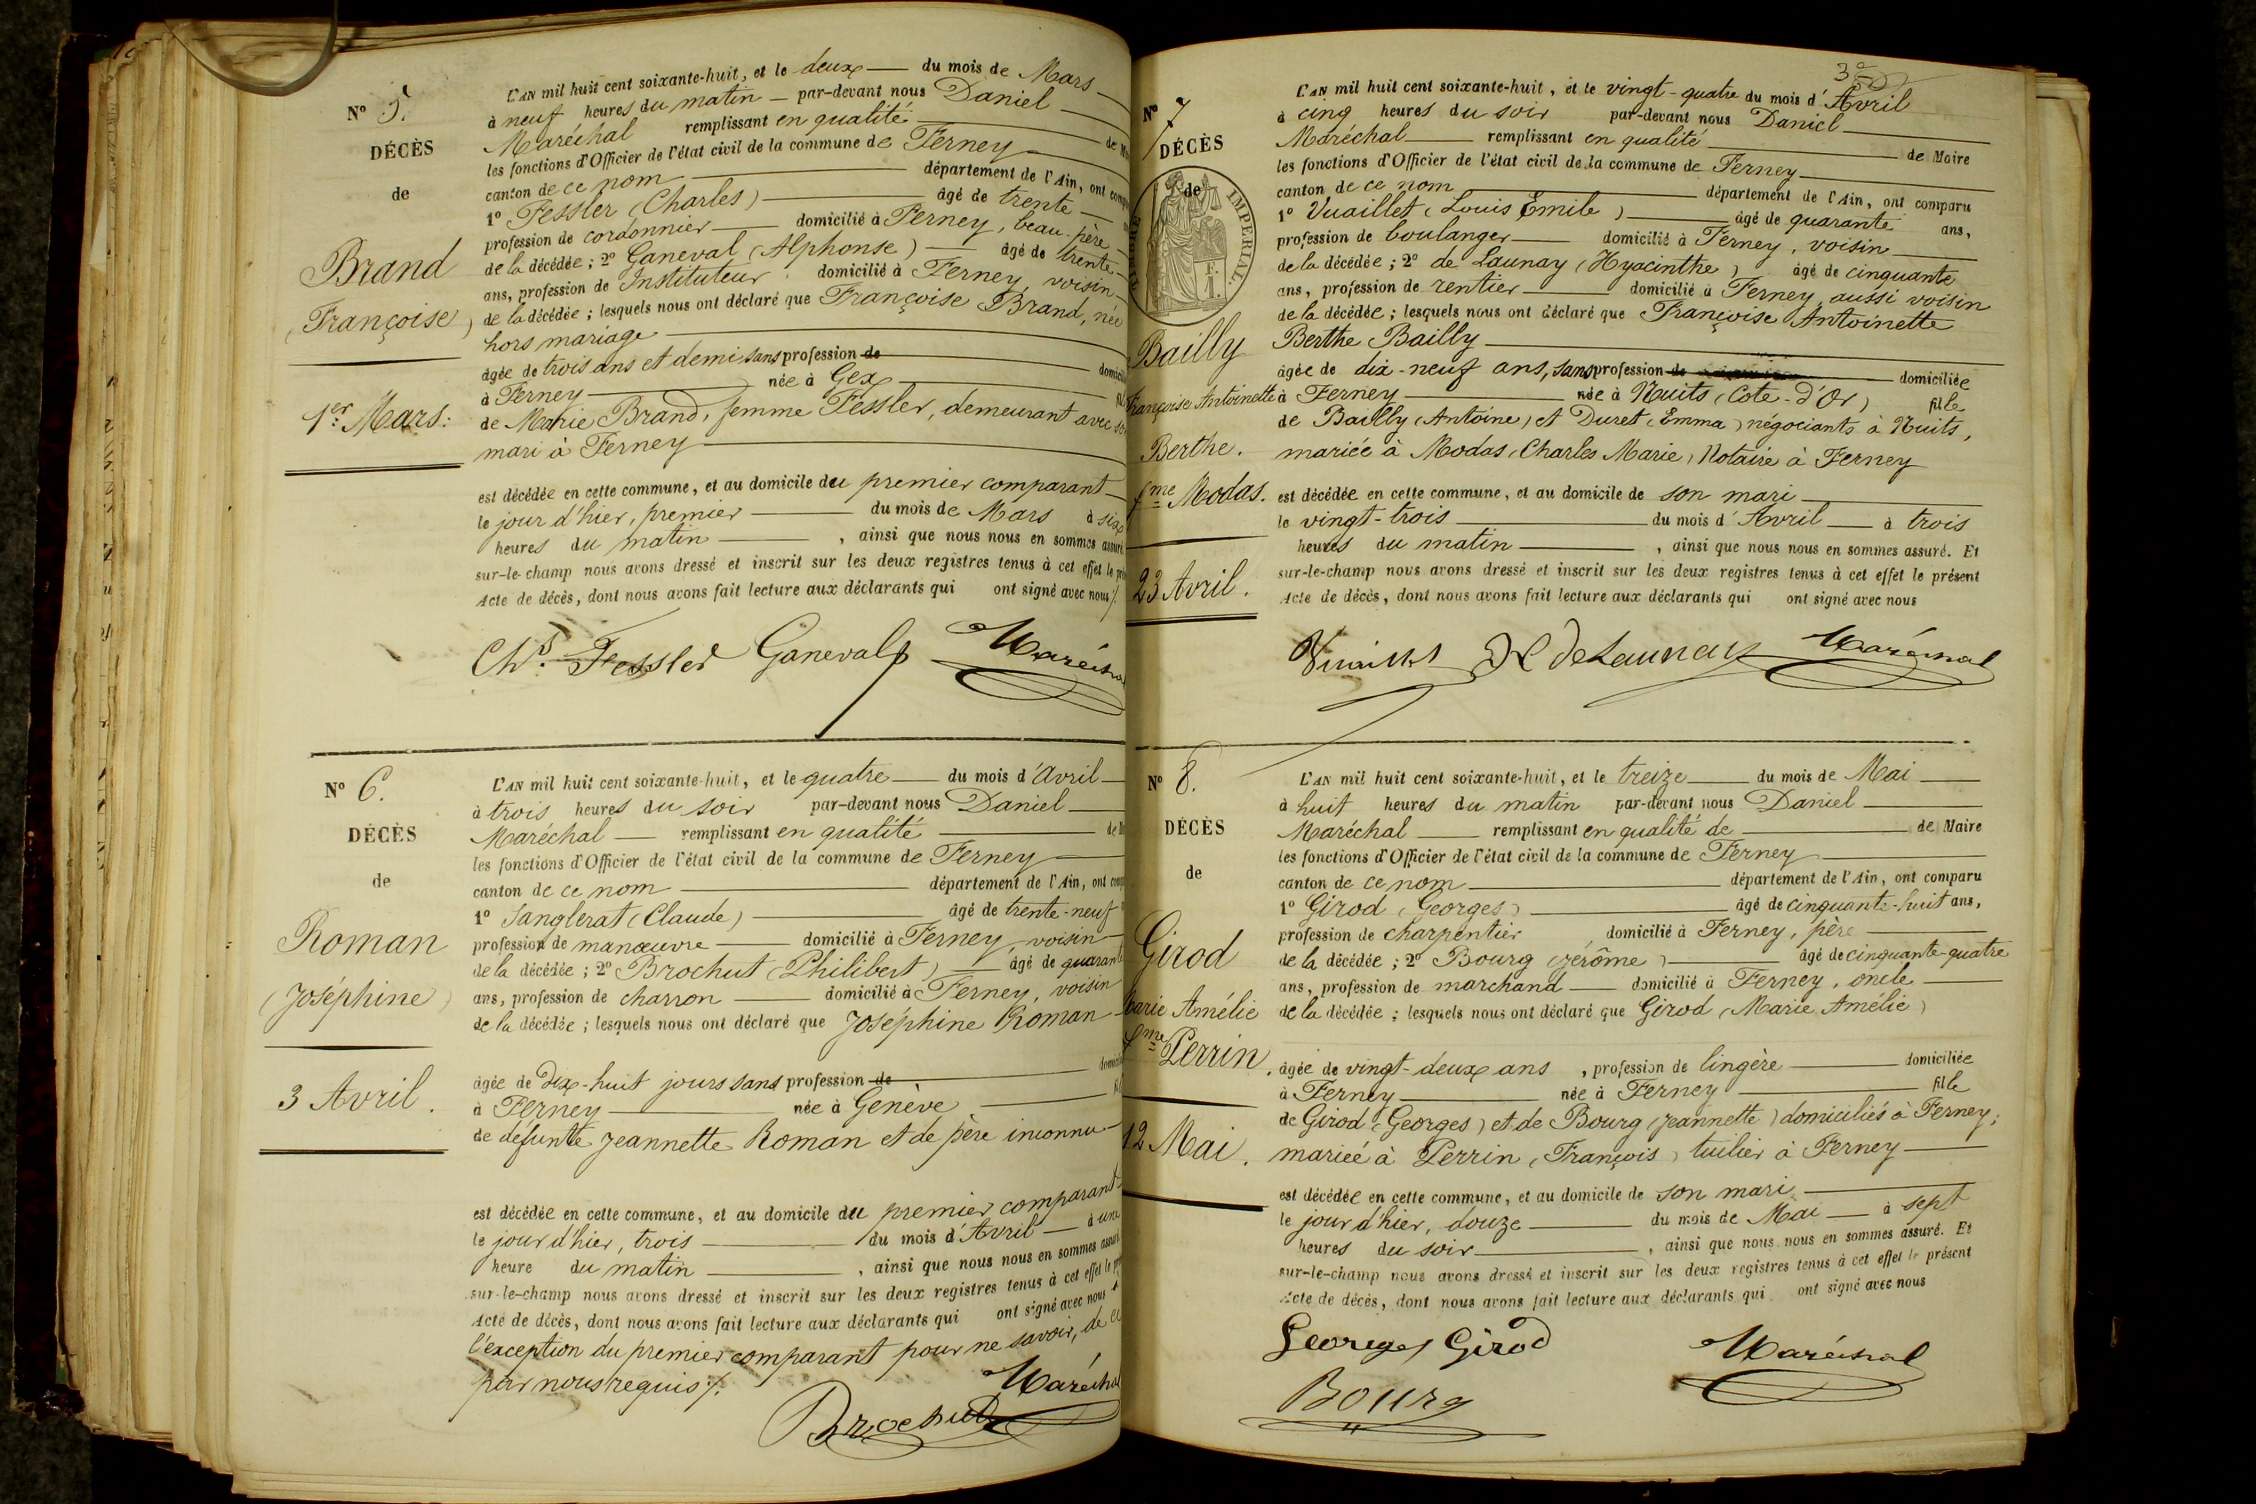 N° 5.
DÉCÈS
de
Brand
(Françoise)
1er Mars.
L'AN mil huit cent soixante-huit, et le deux du mois de Mars
à neuf heures du matin par-devant nous Daniel
Maréchal remplissant en qualité de
les fonctions d'Officier de l'état civil de la commune de Ferney
canton de ce nom département de l'Ain, ont
1° Fessler (Charles) âgé de trente
profession de cordonnier domicilié à Ferney, beau-père
de la décédée ; 2° Ganeval (Alphonse) âgé de trente
ans, profession de Instituteur domicilié à Ferney, voisin
de la décédée ; lesquels nous ont déclaré que Françoise Brand, née
hors mariage
âgée de trois ans et demi sans profession de
à Ferney née à Gex
de Marie Brand, femme Fessler, demeurant avec
mari à Ferney
est décédée en cette commune, et au domicile du premier comparant
le jour d'hier, premier du mois de Mars à six
heures du matin , ainsi que nous nous en sommes
sur-le-champ nous avons dressé et inscrit sur les deux registres tenus à cet effet le
Acte de décès, dont nous avons fait lecture aux déclarants qui ont signé avec nous ./.
Chs. Fessler Ganeval Maréchal
N° 6.
DÉCÈS
de
Roman
(Joséphine)
3 Avril.
L'AN mil huit cent soixante-huit, et le quatre du mois d'Avril
à trois heures du soir par-devant nous Daniel
Maréchal remplissant en qualité de
les fonctions d'Officier de l'état civil de la commune de Ferney
canton de ce nom département de l'Ain, ont
1° Sanglerat (Claude) âgé de trente-neuf
profession de manœuvre domicilié à Ferney, voisin
de la décédée ; 2° Brochut (Philibert) âgé de quarante
ans, profession de charron domicilié à Ferney, voisin
de la décédée ; lesquels nous ont déclaré que Joséphine Roman
âgée de dix-huit jours sans profession de
à Ferney née à Genève
de défunte Jeannette Roman et de père inconnu
est décédée en cette commune, et au domicile du premier comparant
le jour d'hier, trois du mois d'Avril à une
heure du matin , ainsi que nous nous en sommes
sur-le-champ nous avons dressé et inscrit sur les deux registres tenus à cet effet le
Acte de décès, dont nous avons fait lecture aux déclarants qui ont signé avec nous à
l'exception du premier comparant pour ne savoir, de ce
par nous requis ./.
Maréchal
Brochut
N° 7
DÉCÈS
de
IMPERIAL
Bailly
Françoise Antoinette
Berthe.
fme Modas.
23 Avril.
L'AN mil huit cent soixante-huit, et le vingt-quatre du mois d'Avril
à cinq heures du soir par-devant nous Daniel
Maréchal remplissant en qualité de Maire
les fonctions d'Officier de l'état civil de la commune de Ferney
canton de ce nom département de l'Ain, ont comparu
1° Vuaillet (Louis Emile) âgé de quarante ans,
profession de boulanger domicilié à Ferney, voisin
de la décédée ; 2° de Launay (Hyacinthe) âgé de cinquante
ans, profession de rentier domicilié à Ferney, aussi voisin
de la décédée ; lesquels nous ont déclaré que Françoise Antoinette
Berthe Bailly
âgée de dix-neuf ans, sans profession de domiciliée
à Ferney née à Nuits (Côte-d'Or) fille
de Bailly (Antoine) et Duret (Emma) négociants à Nuits,
mariée à Modas (Charles Marie) Notaire à Ferney
est décédée en cette commune, et au domicile de son mari
le vingt-trois du mois d'Avril à trois
heures du matin , ainsi que nous nous en sommes assuré. Et
sur-le-champ nous avons dressé et inscrit sur les deux registres tenus à cet effet le présent
Acte de décès, dont nous avons fait lecture aux déclarants qui ont signé avec nous
Vuaillet H de Launay Maréchal
N° 8.
DÉCÈS
de
Girod
Marie Amélie
fme Perrin.
12 Mai.
L'AN mil huit cent soixante-huit, et le treize du mois de Mai
à huit heures du matin par-devant nous Daniel
Maréchal remplissant en qualité de de Maire
les fonctions d'Officier de l'état civil de la commune de Ferney
canton de ce nom département de l'Ain, ont comparu
1° Girod (Georges) âgé de cinquante-huit ans,
profession de charpentier domicilié à Ferney, père
de la décédée ; 2° Bourg (Jérôme) âgé de cinquante-quatre
ans, profession de marchand domicilié à Ferney, oncle
de la décédée ; lesquels nous ont déclaré que Girod (Marie Amélie)
âgée de vingt-deux ans , profession de lingère domiciliée
à Ferney née à Ferney fille
de Girod (Georges) et de Bourg (Jeannette) domiciliés à Ferney;
mariée à Perrin (François) tuilier à Ferney
est décédée en cette commune, et au domicile de son mari
le jour d'hier, douze du mois de Mai à sept
heures du soir , ainsi que nous nous en sommes assuré. Et
sur-le-champ nous avons dressé et inscrit sur les deux registres tenus à cet effet le présent
Acte de décès, dont nous avons fait lecture aux déclarants qui ont signé avec nous
Georges Girod Maréchal
Bourg